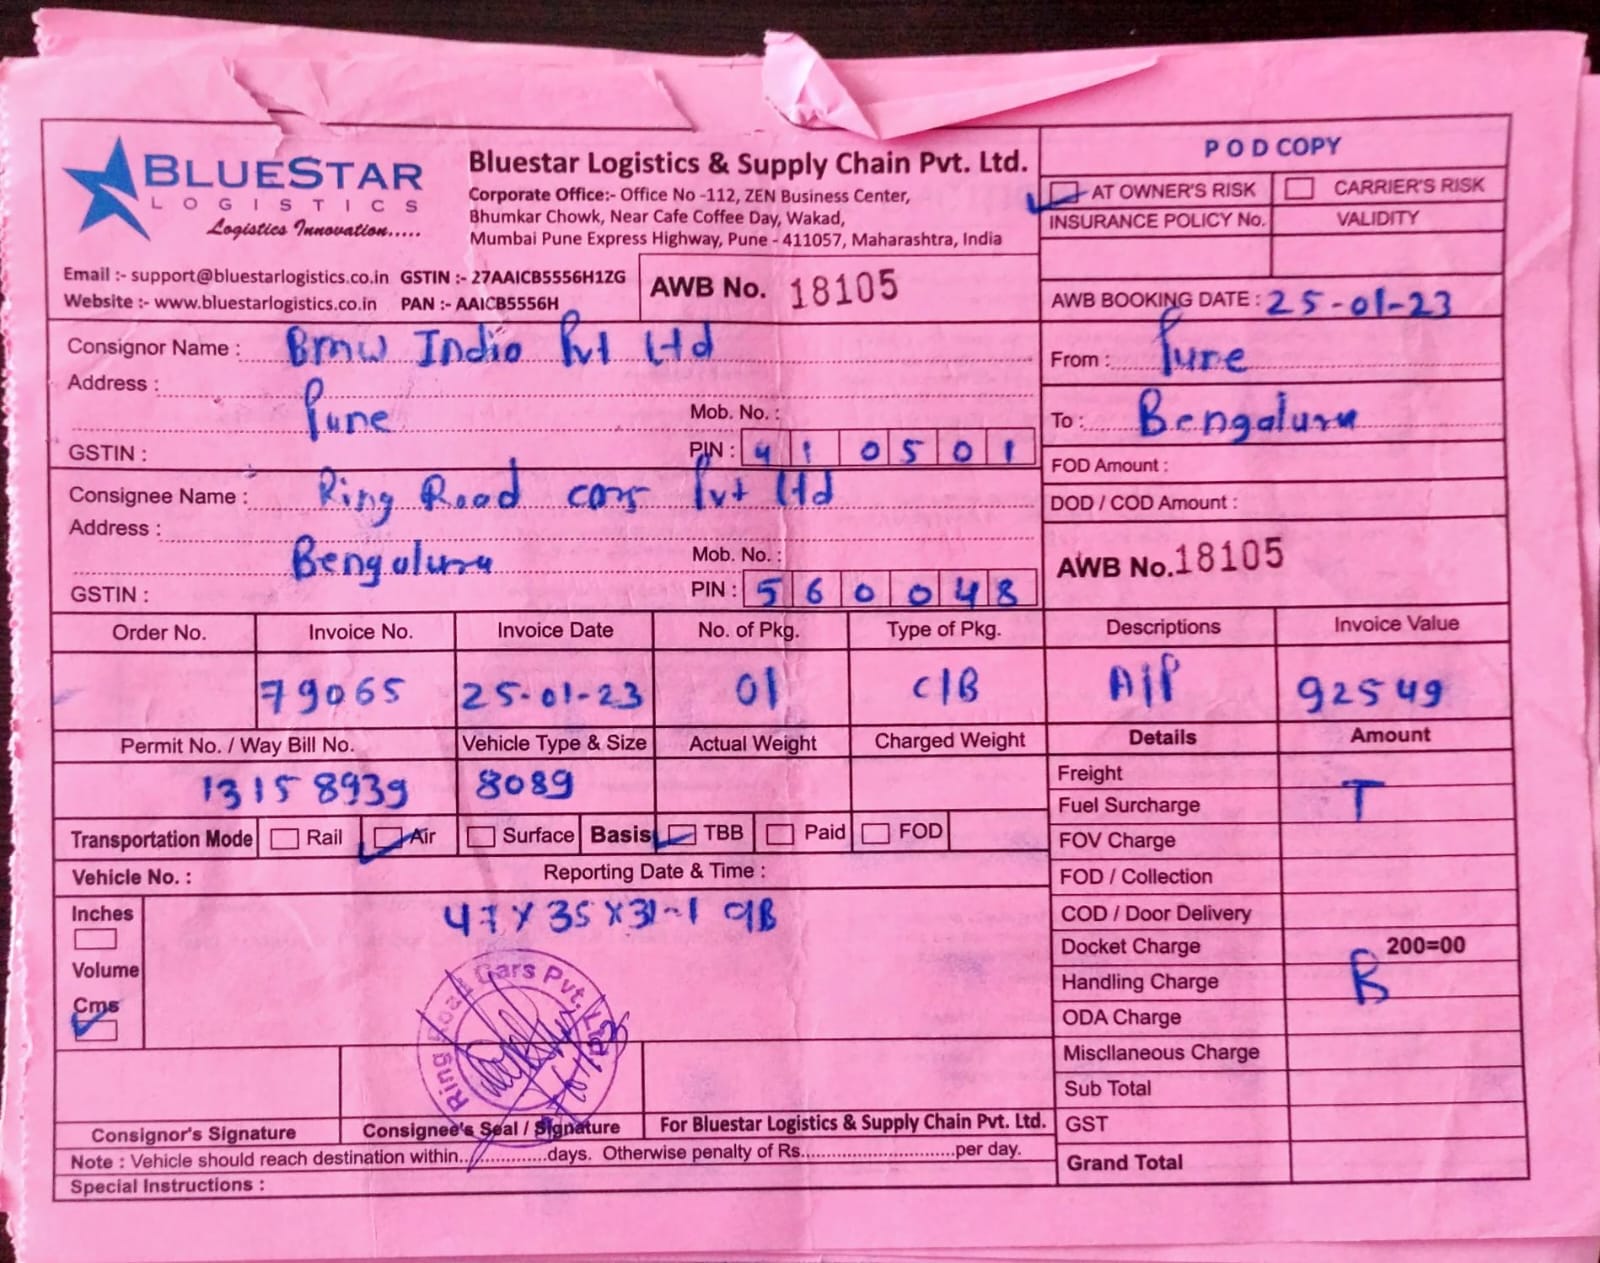 BLUESTAR
LOGISTICS
Logistics Innovation.....
Bluestar Logistics & Supply Chain Pvt. Ltd.
Corporate Office:- Office No -112, ZEN Business Center,
Bhumkar Chowk, Near Cafe Coffee Day, Wakad,
Mumbai Pune Express Highway, Pune - 411057, Maharashtra, India
Email :- support@bluestarlogistics.co.in GSTIN :- 27AAICB5556H1ZG
Website :- www.bluestarlogistics.co.in PAN :- AAICB5556H
AWB No. 18105
POD COPY
AT OWNER'S RISK CARRIER'S RISK
INSURANCE POLICY No. VALIDITY
AWB BOOKING DATE : 25-01-23
Consignor Name : Bmw India Pvt Ltd
Address :
Pune
Mob. No. :
GSTIN :
PIN : 410501
From : Pune
To : Bengaluru
FOD Amount :
DOD / COD Amount :
Consignee Name : Ring Road cars Pvt Ltd
Address :
Bengaluru
Mob. No. :
GSTIN :
PIN : 560048
AWB No. 18105
Order No. Invoice No. Invoice Date No. of Pkg. Type of Pkg. Descriptions Invoice Value
79065 25-01-23 01 C/B A/P 92549
Permit No. / Way Bill No. Vehicle Type & Size Actual Weight Charged Weight Details Amount
131589939 8089
Transportation Mode Rail Air Surface Basis TBB Paid FOD
Vehicle No. : Reporting Date & Time :
Inches
Volume
Cms
47 X 35 X 31-1 C/B
Ring Road Cars Pvt. Ltd
Freight
Fuel Surcharge T
FOV Charge
FOD / Collection
COD / Door Delivery
Docket Charge 200=00
Handling Charge B
ODA Charge
Miscllaneous Charge
Sub Total
GST
Grand Total
Consignor's Signature Consignee's Seal / Signature For Bluestar Logistics & Supply Chain Pvt. Ltd.
Note : Vehicle should reach destination within...............days. Otherwise penalty of Rs............................per day.
Special Instructions :